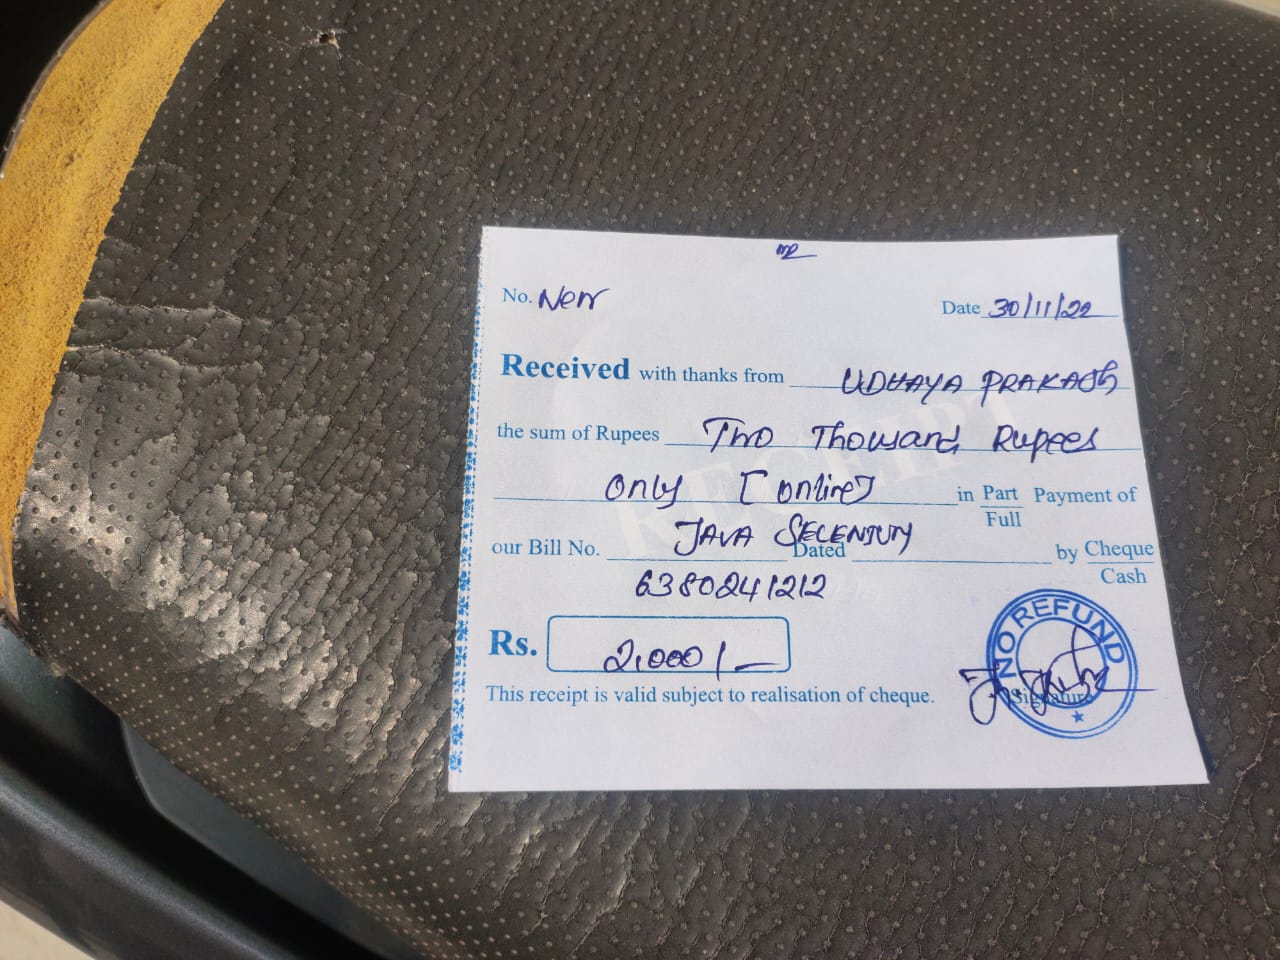 No. New
Date 30/11/22
Received with thanks from UDHAYA PRAKASh
the sum of Rupees Two Thousand Rupees
only [online] in Part Payment of
Full
JAVA SELENIUM
our Bill No. Dated by Cheque
Cash
6380241212
Rs. 2,000/-
NO REFUND
This receipt is valid subject to realisation of cheque.
Signature